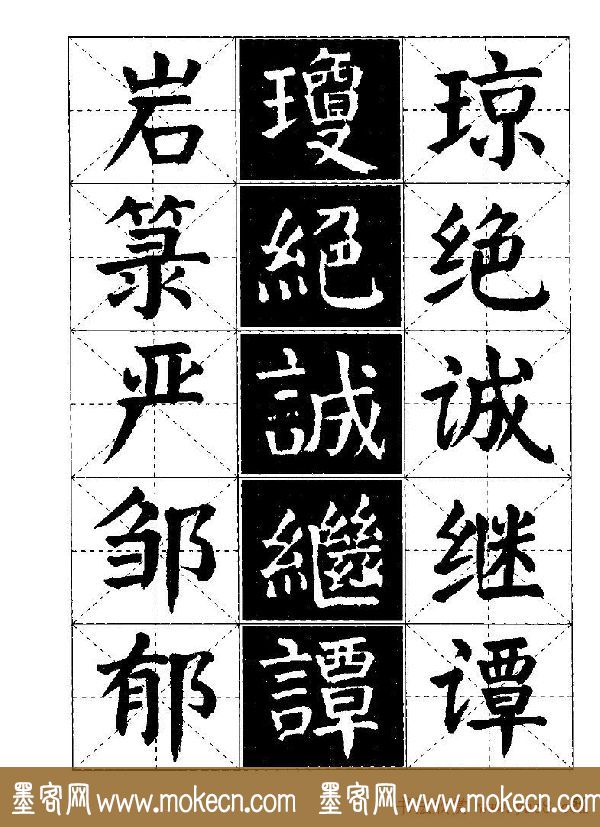 岩 瓊 琼
箓 絕 绝
严 誠 诚
邹 繼 继
郁 譚 谭
墨客网 www.mokecn.com 墨客网 www.mokecn.com